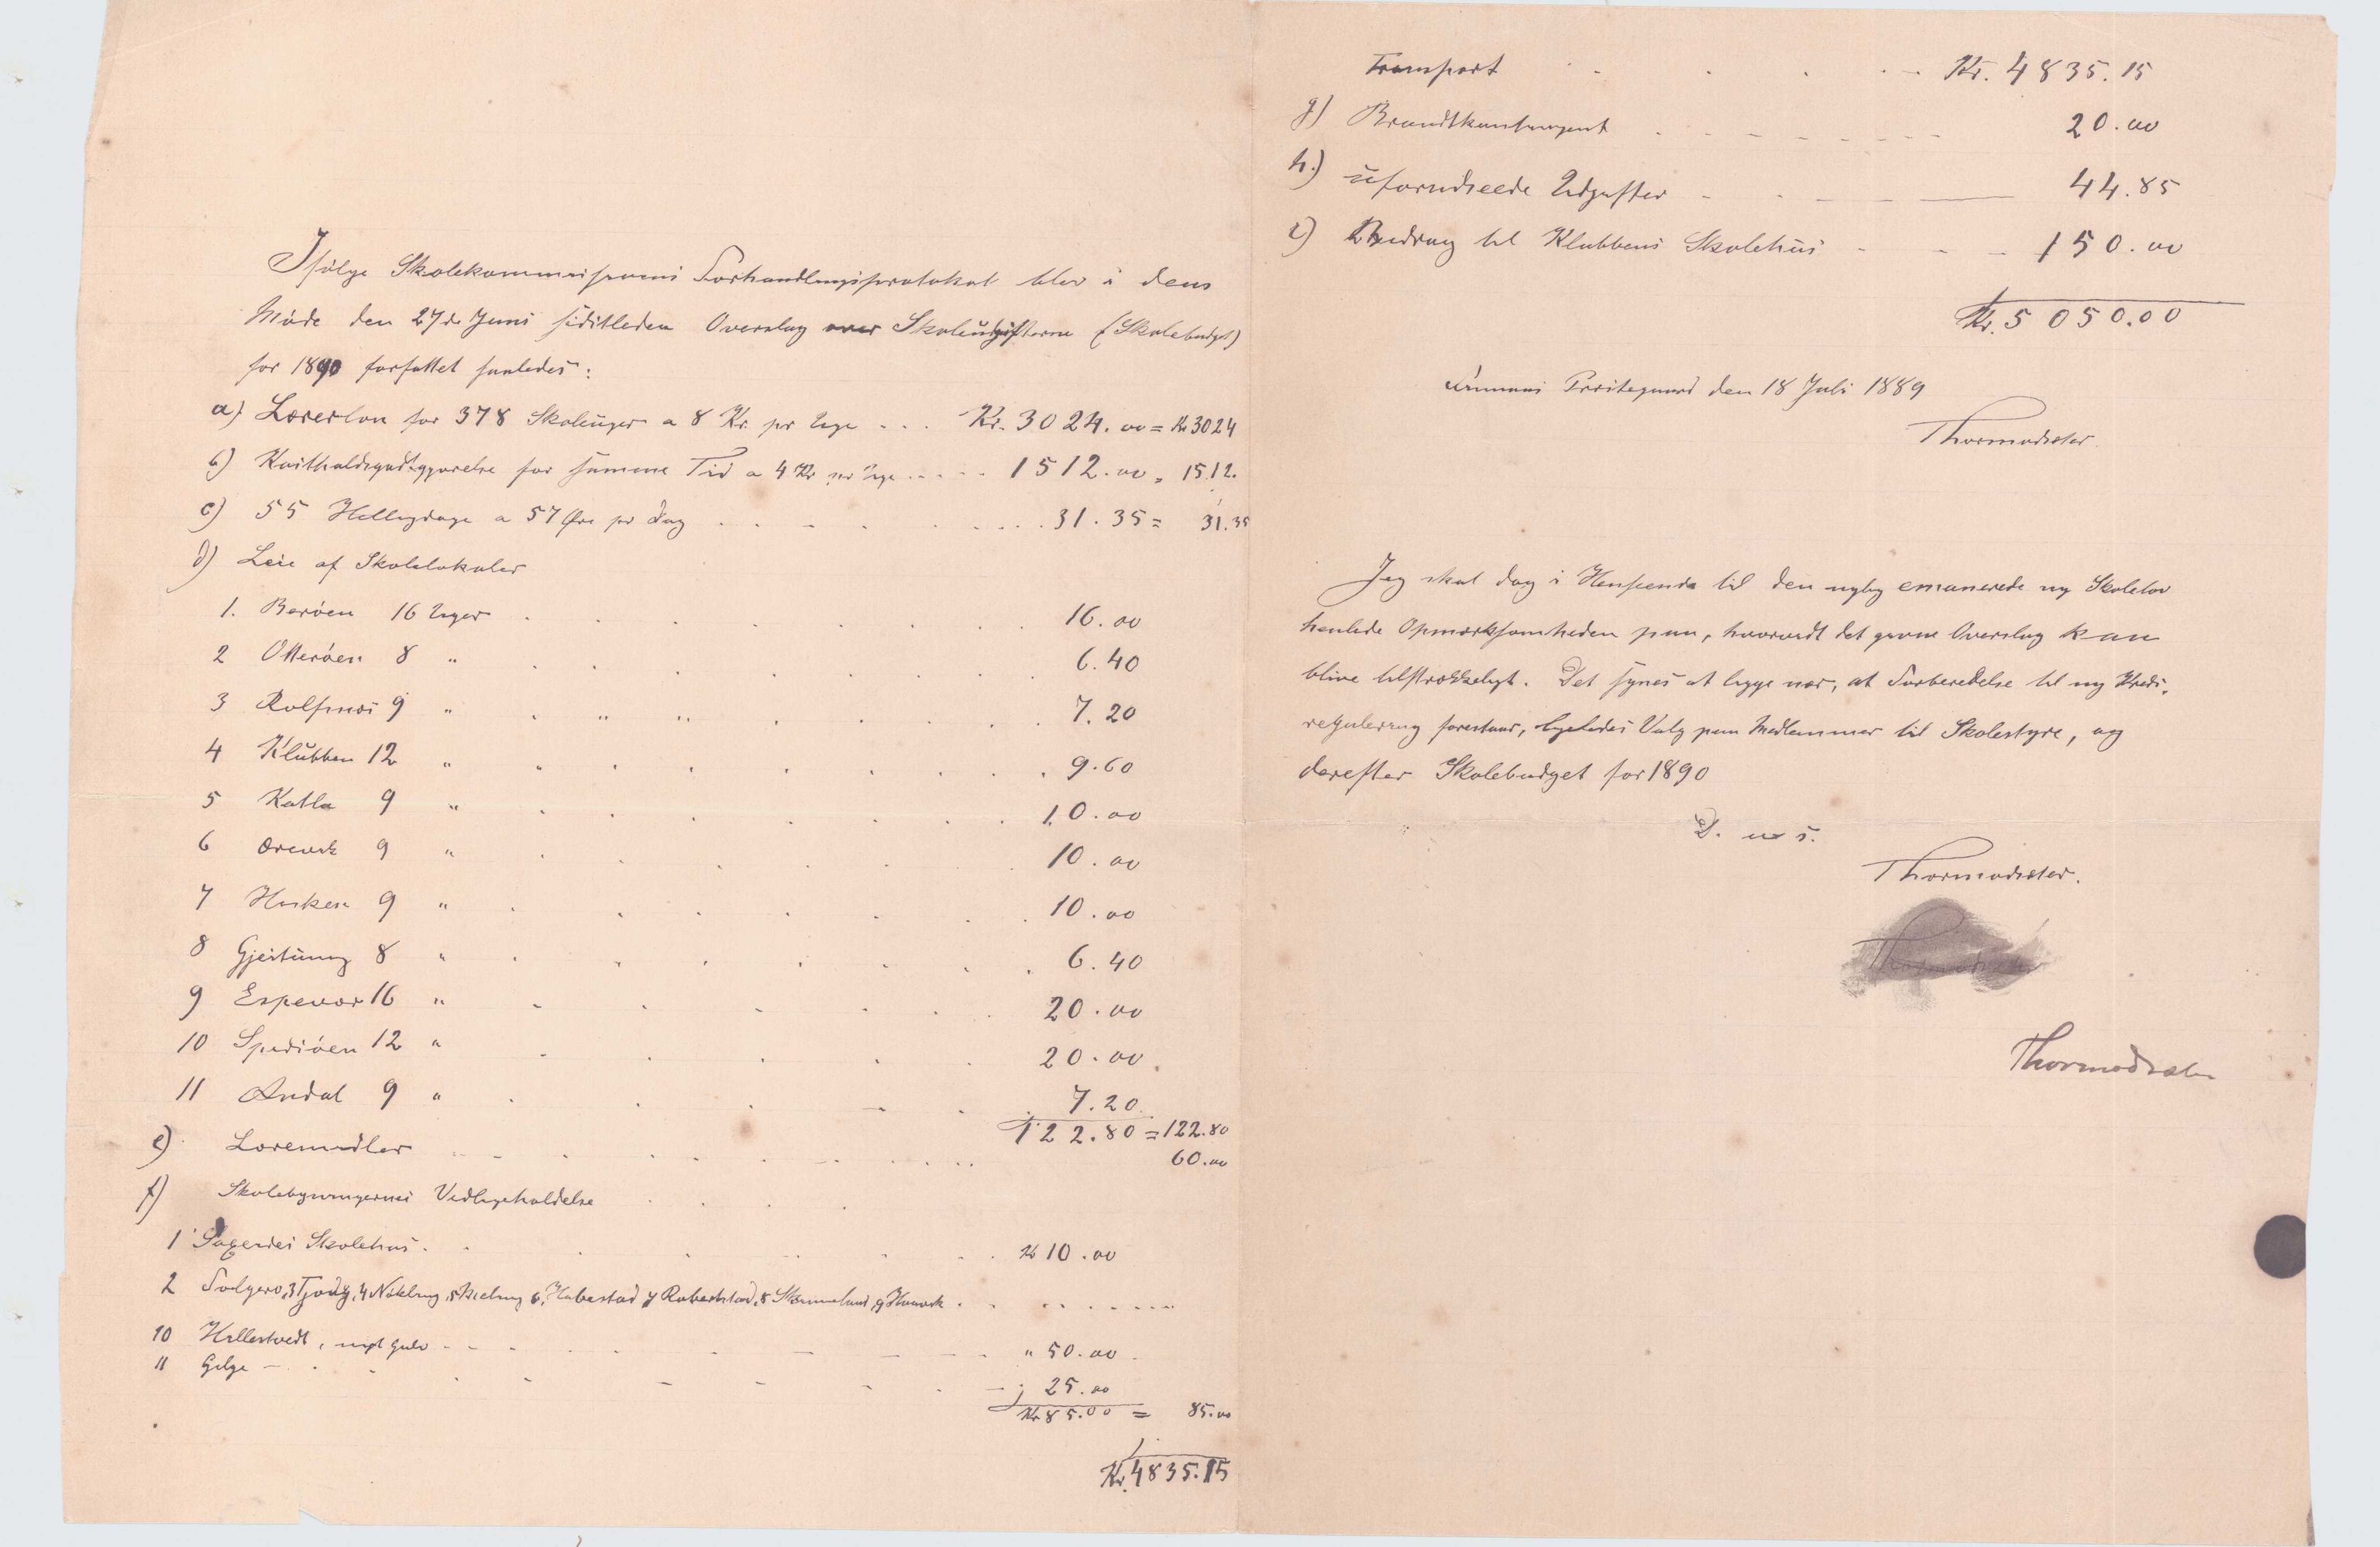 Ifølge Skolekommissionens Forhandlingsprotokol blev i dens
Møde den 27de Juni sidstleden Overslag over Skoleudgifterne (Skolebudget)
for 1890 forfattet saaledes:
a) Lærerløn for 378 Skoleuger a 8 Kr. pr Uge . . . Kr. 3024.00 = Kr 3024
b) Kostholdsgodtgjørelse for samme Tid a 4 Kr pr Uge . . . . . 1512.00 " 1512.
c) 55 Helligdage a 57 Øre pr Dag . . . . 31.35 = 31.35
d) Leie af Skolelokaler
1. Børøen 16 Uger . . . 16.00
2 Otterøen 8 " . . . 6.40
3 Rolfsnes 9 " . . . 7.20
4 Klubben 12 " . . . 9.60
5 Katla 9 " . . . 10.00
6 Ørevik 9 " . . . 10.00
7 Hisken 9 " . . . 10.00
8 Gjeitung 8 " . . . 6.40
9 Espevær 16 " . . . 20.00
10 Spidsøen 12 " . . . 20.00
11 Andal 9 " . . . 7.20
122.80 = 122.80
e) Læremidler . . . 60.00
f) Skolebygningernes Vedligeholdelse . . .
1 Skolehus . . . Kr 10.00
2 Folgerø, 3 4 Nøkling, 5 6, Habestad 7 Robertstad, 8 9 . . .
10 Hellestvedt, nyt Gulv - - - " 50.00
11 Gilje - . . . 25.00
Kr 85.00 = 85.00
Kr. 4835.15
Transport . . . Kr. 4835.15
g) Brandtkontingent . . . 20.00
h.) uforudseede Udgifter . . . 44.85
i) Bidrag til Klubbens Skolehus - - - 150.00
Kr. 5050.00
Finnaas Prestegaard den 18 Juli 1889
Thormodsæter.
Jeg skal dog i Henseende til den nylig emanerede ny Skolelov
henlede Opmærksomheden paa, hvorvidt det givne Overslag kan
blive tilstrækkeligt. Det synes at ligge nær, at Forberedelse til ny Kreds-
regulering forestaar, ligeledes Valg paa Medlemmer til Skolestyre, og
derefter Skolebudget for 1890
D. u s.
Thormodsæter.
Thormodsæter
Thormodsæter